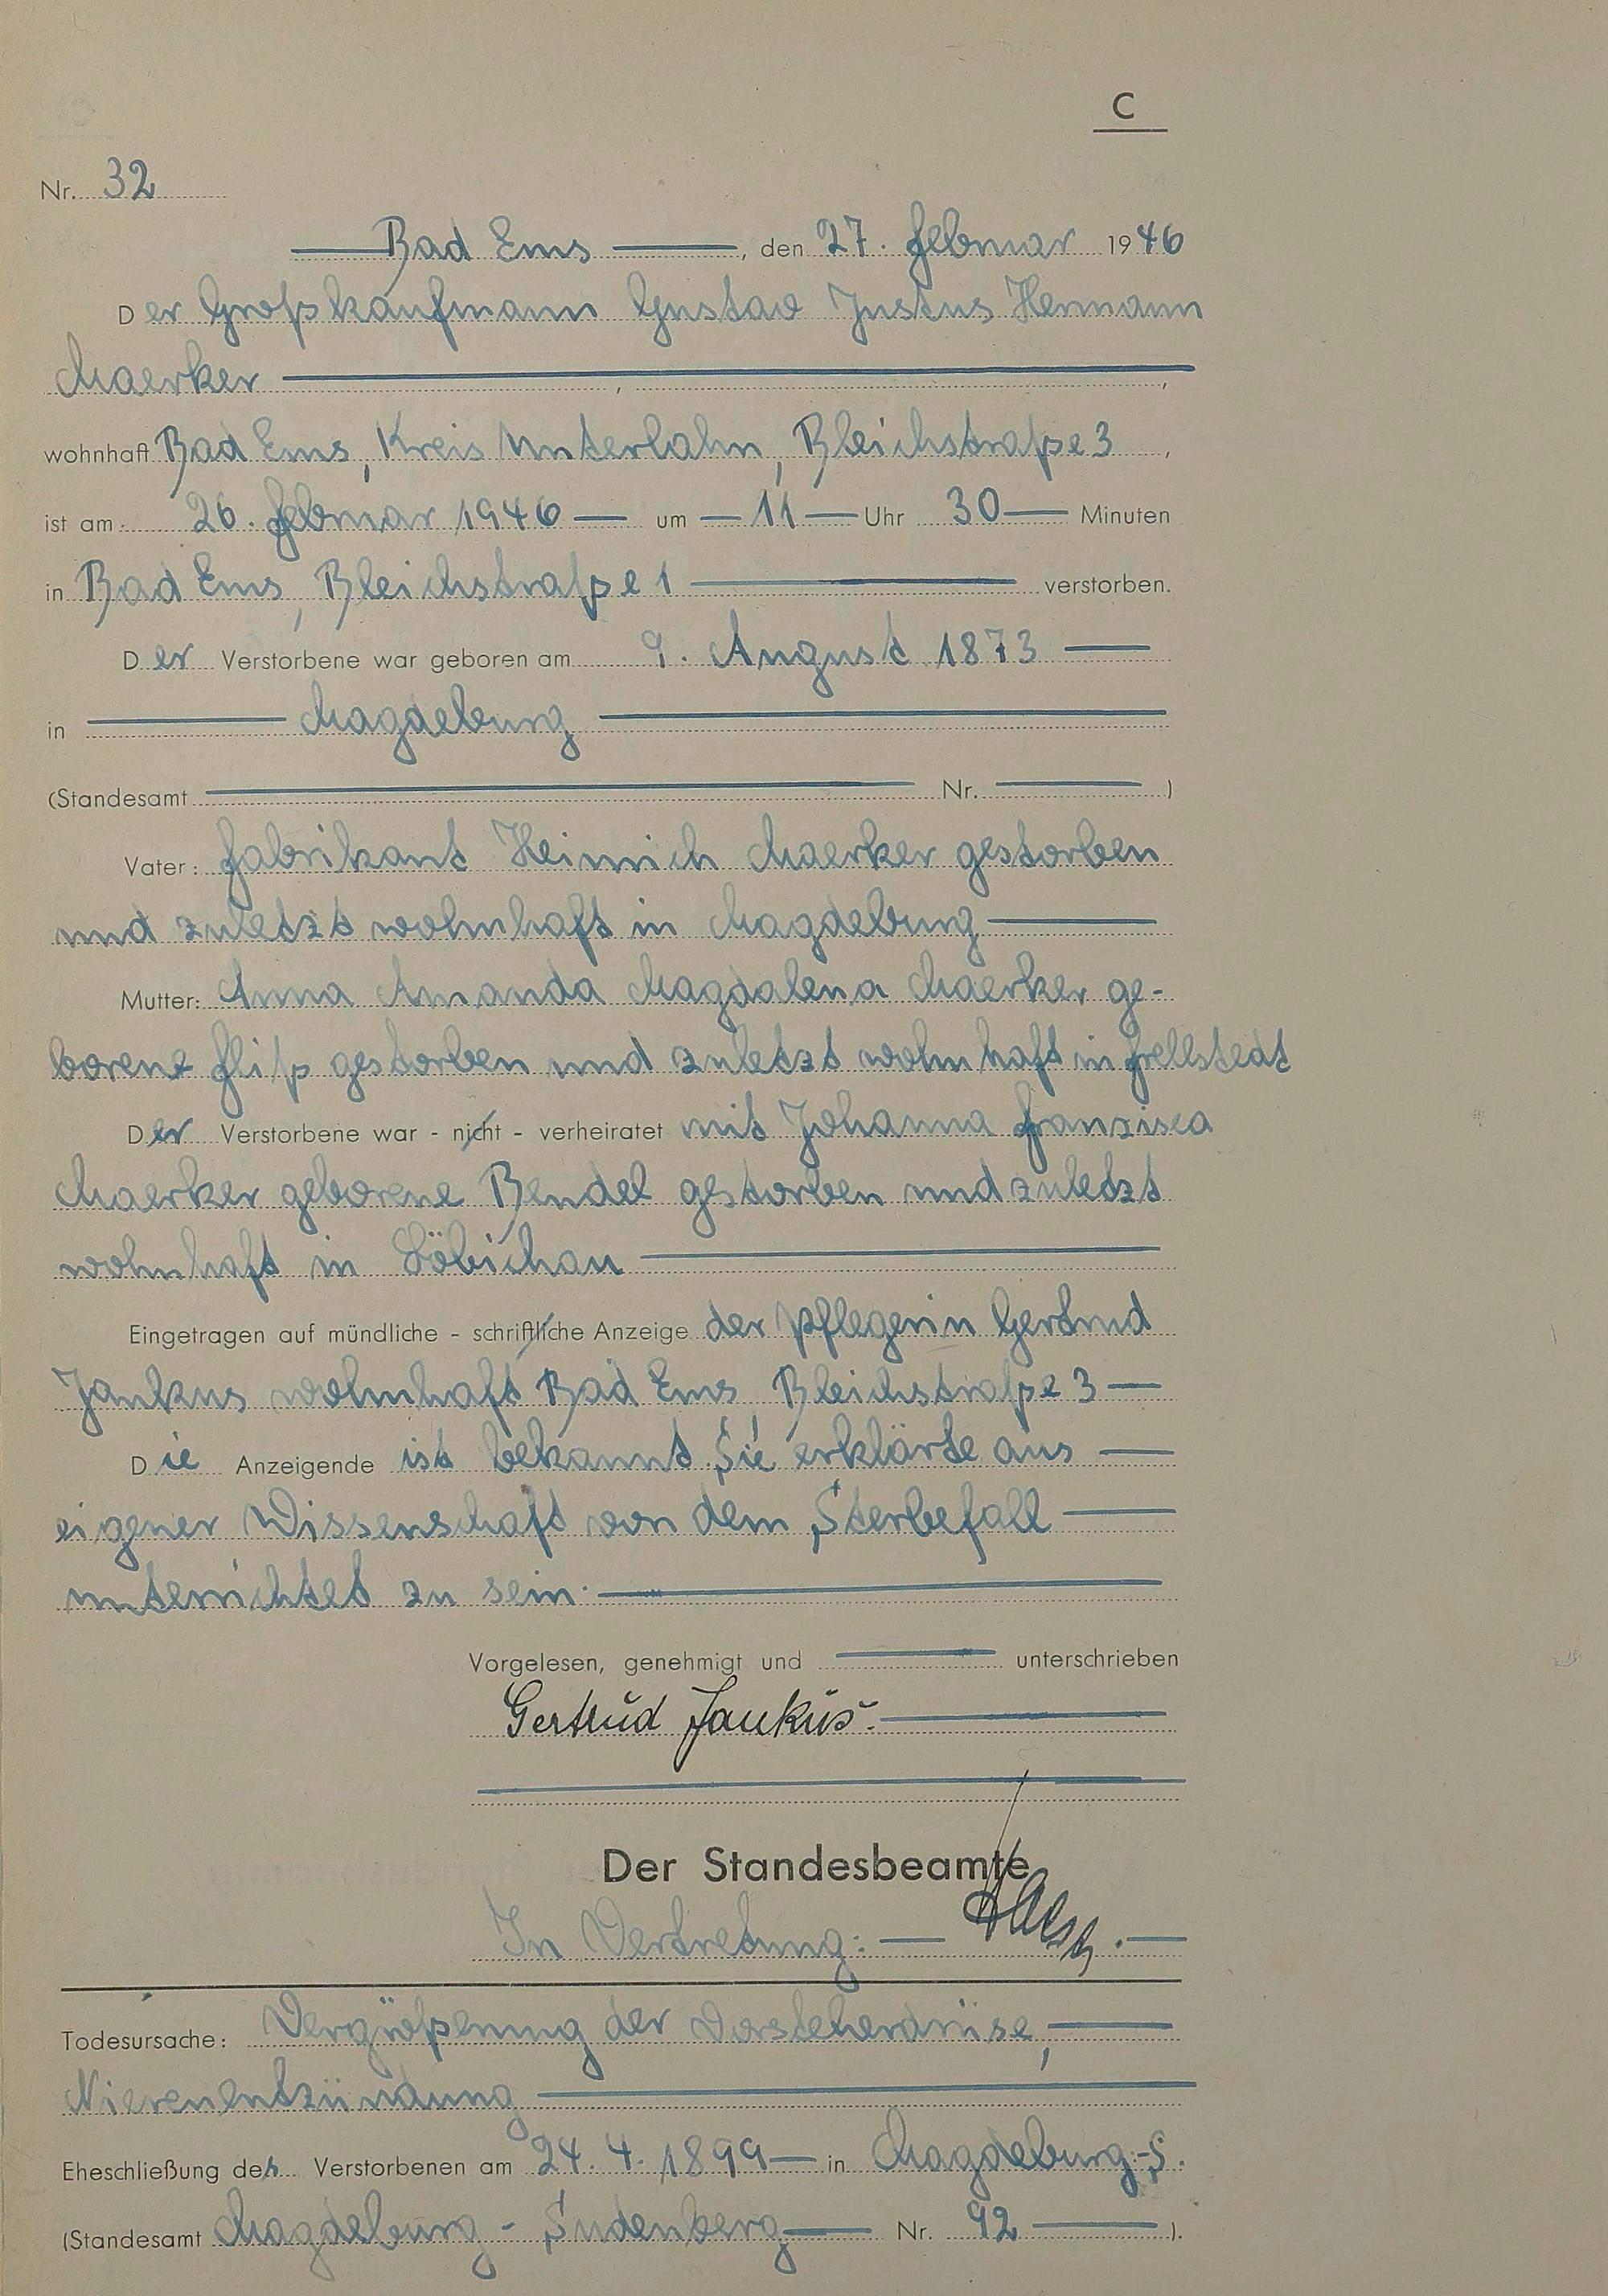 C
Nr. 32
Bad Ems, den 27. Februar 1946
Der Großkaufmann Gustav Justus Hermann
Maerker
wohnhaft Bad Ems, Kreis Unterlahn, Bleichstraße 3,
ist am 26. Februar 1946 um 11 Uhr 30 Minuten
in Bad Ems, Bleichstraße 1 verstorben.
Der Verstorbene war geboren am 9. August 1873
in Magdeburg
(Standesamt Nr. )
Vater: Fabrikant Heinrich Maerker gestorben
und zuletzt wohnhaft in Magdeburg
Mutter: Anna Amanda Magdalena Maerker ge-
borene Fliß gestorben und zuletzt wohnhaft in Frellstedt
Der Verstorbene war - nicht - verheiratet mit Johanna Franzisca
Maerker geborene Bendel gestorben und zuletzt
wohnhaft in Löbichau
Eingetragen auf mündliche - schriftliche Anzeige der Pflegerin Gertrud
Jankus wohnhaft Bad Ems Bleichstraße 3
Die Anzeigende ist bekannt. Sie erklärte aus
eigener Wissenschaft von dem Sterbefall
unterrichtet zu sein.
Vorgelesen, genehmigt und unterschrieben
Gertrud Jankus.
Der Standesbeamte
In Vertretung:
Todesursache: Vergrößerung der Vorsteherdrüse,
Nierenentzündung
Eheschließung des Verstorbenen am 24. 4. 1899 in Magdeburg-S.
(Standesamt Magdeburg - Sudenberg Nr. 92 ).